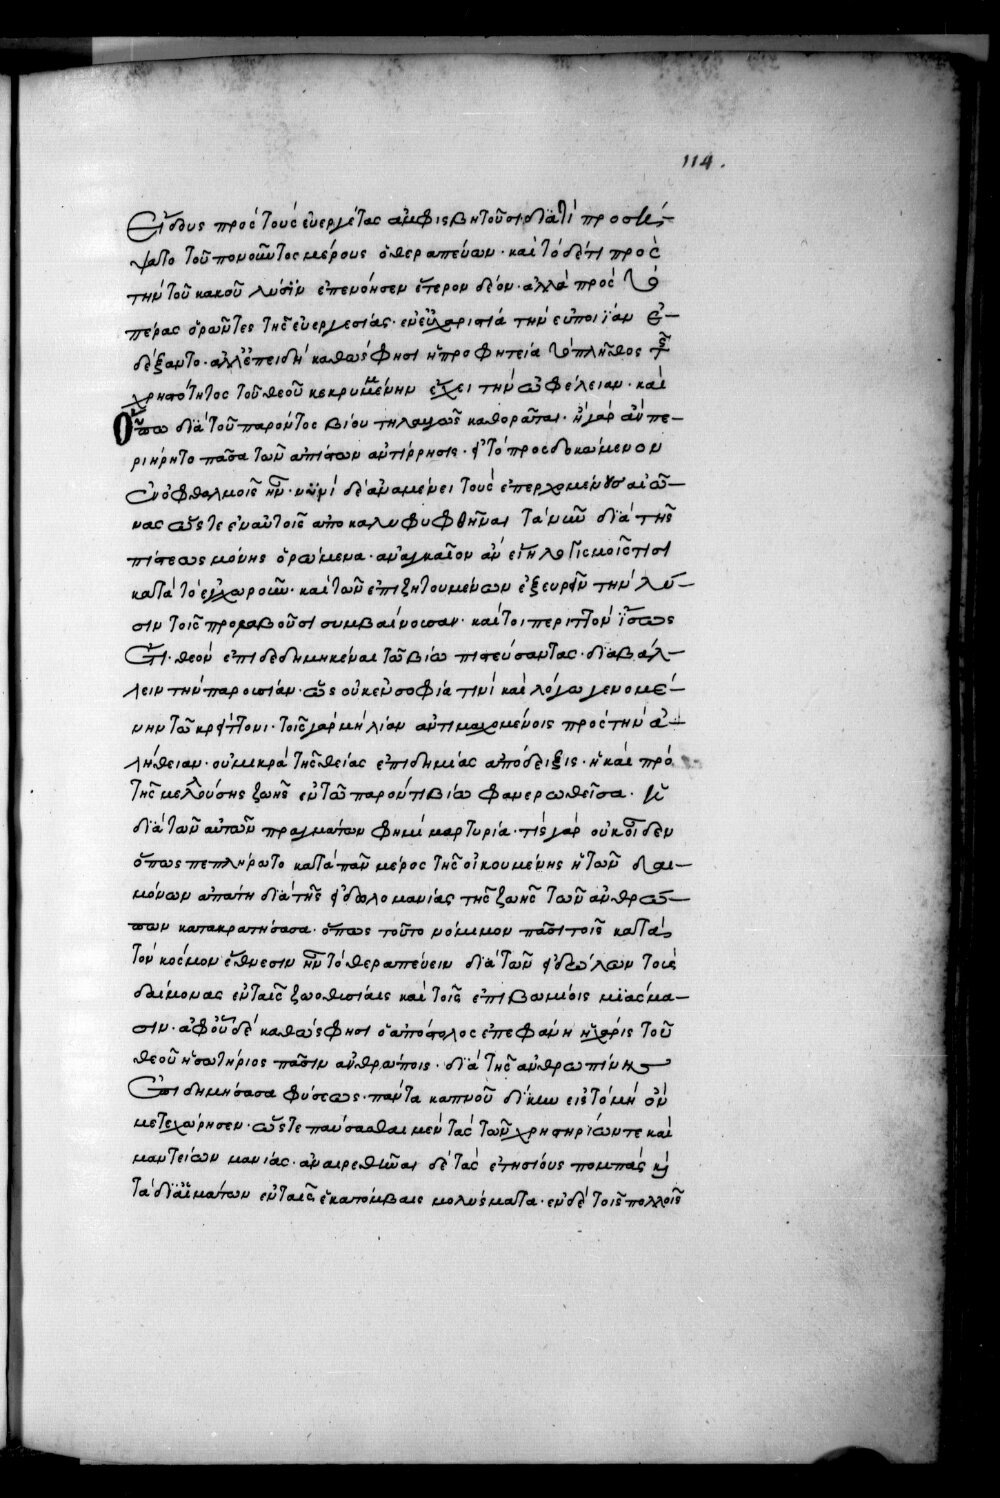 114.
εἴδους πρὸς τοὺς εὐεργέτας ἀμφισβητοῦσι διατί προσή-
ψατο τοῦ πονοῦντος μέρους ὁ θεραπεύων· καὶ τὸ δέτι πρὸς
τὴν τοῦ κακοῦ λύσϊν ἐπενόησεν ἕτερον δέον· ἀλλὰ πρὸς τὸ
πέρας ὁρῶντες τῆς εὐεργεσίας· ἐν εὐχαριστία τὴν εὐποιΐαν ἐ-
δέξαντο· ἀλλ' ἐπειδὴ καθώς φησι ἡ προφητεία τὸ πλῆθος τῆς
χρηστότητος τοῦ θεοῦ κεκρυμμένην ἔχει τὴν ὠφέλειαν· καὶ
Οὔπω διὰ τοῦ παρόντος βίου τηλαυγῶς καθορᾶται· ἦ γὰρ ἂν πε-
ριήρητο πᾶσα τῶν ἀπίστων ἀντίρρησις· εἰ τὸ προσδοκώμενον
ἐν ὀφθαλμοῖς ἦν· νυνὶ δὲ ἀναμένει τοὺς ἐπερχομένους αἰῶ-
νας ὥστε ἐν αὐτοῖς ἀποκαλυφυφθῆναι τὰ νῦν διὰ τῆς
πίστεως μόνης ὁρώμενα· ἀναγκαῖον ἂν εἴη λογισμοῖς τισι
κατὰ τὸ ἐγχωροῦν· καὶ τῶν ἐπιζητουμένων ἐξευρεῖν τὴν λύ-
σιν τοῖς προλαβοῦσι συμβαίνουσαν· καίτοι περιττὸν ἴσως
ἐστι· θεὸν ἐπιδεδημηκέναι τῶ βίω πιστεύσαντας· διαβάλ-
λειν τὴν παρουσίαν· ὡς οὐκ ἐν σοφία τινὶ καὶ λόγω γενομέ-
νην τῶ κρείττονι· τοῖς γὰρ μὴ λίαν ἀντιμαχομένοις πρὸς τὴν ἀ-
λήθειαν· οὐ μικρὰ τῆς θείας ἐπιδημίας ἀπόδειξις· ἡ καὶ πρὸ
τῆς μελλούσης ζωῆς ἐν τῶ παρόντι βίω φανερωθεῖσα· ἡ
διὰ τῶν αὐτῶν πραγμάτων φημὶ μαρτυρία· τίς γὰρ οὐκ οἶδεν
ὅπως πεπλήρωτο κατὰ πᾶν μέρος τῆς οἰκουμένης ἡ τῶν δαι-
μόνων ἀπάτη διὰ τῆς εἰδωλομανίας τῆς ζωῆς τῶν ἀνθρώ-
πων κατακρατήσασα· ὅπως τοῦτο νόμιμον πᾶσι τοῖς κατὰ
τὸν κόσμον ἔθνεσιν ἦν τὸ θεραπεύειν διὰ τῶν εἰδώλων τοὺς
δαίμονας ἐν ταῖς ζωοθυσίαις καὶ τοῖς ἐπιβωμίοις μιάσμα-
σιν· ἀφ' οὗ δὲ καθώς φησι ὁ ἀπόστολος ἐπεφάνη ἡ χάρις τοῦ
θεοῦ ἡ σωτήριος πᾶσιν ἀνθρώποις· διὰ τῆς ἀνθρωπίνης
ἐπιδημήσασα φύσεως· πάντα καπνοῦ δίκην εἰς τὸ μὴ ὂν
μετεχώρησεν· ὥστε παύσασθαι μὲν τὰς τῶν χρηστηρίων τε καὶ
μαντείων μανίας· ἀναιρεθῆναι δὲ τὰς ἐτησίους πομπὰς καὶ
τὰ δι' αἱμάτων ἐν ταῖς ἑκατόμβαις μολύσματα· ἐν δὲ τοῖς πολλοῖς